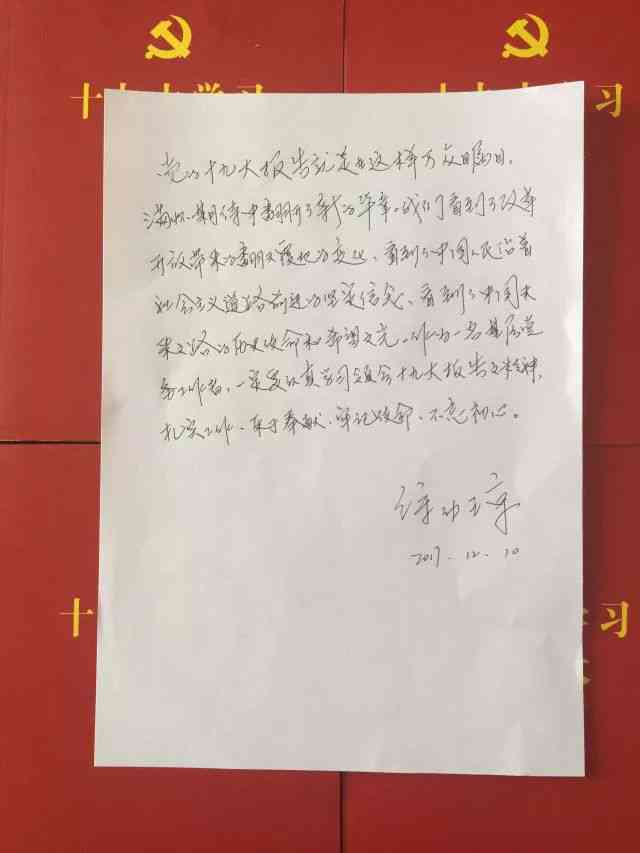 十九大学习
十九大学习
党的十九大报告就是在这样万众瞩目、
满怀期待中翻开了新的华章。我们看到了改革
开放带来的翻天覆地的变化、看到了中国人民沿着
社会主义道路前进的坚定信念、看到了中国未
来之路的历史使命和希望之光。作为一名基层
工作者，一定要认真学习领会十九大报告之精神，
扎实工作、乐于奉献、牢记使命、不忘初心。
2017.12.10
十
学习